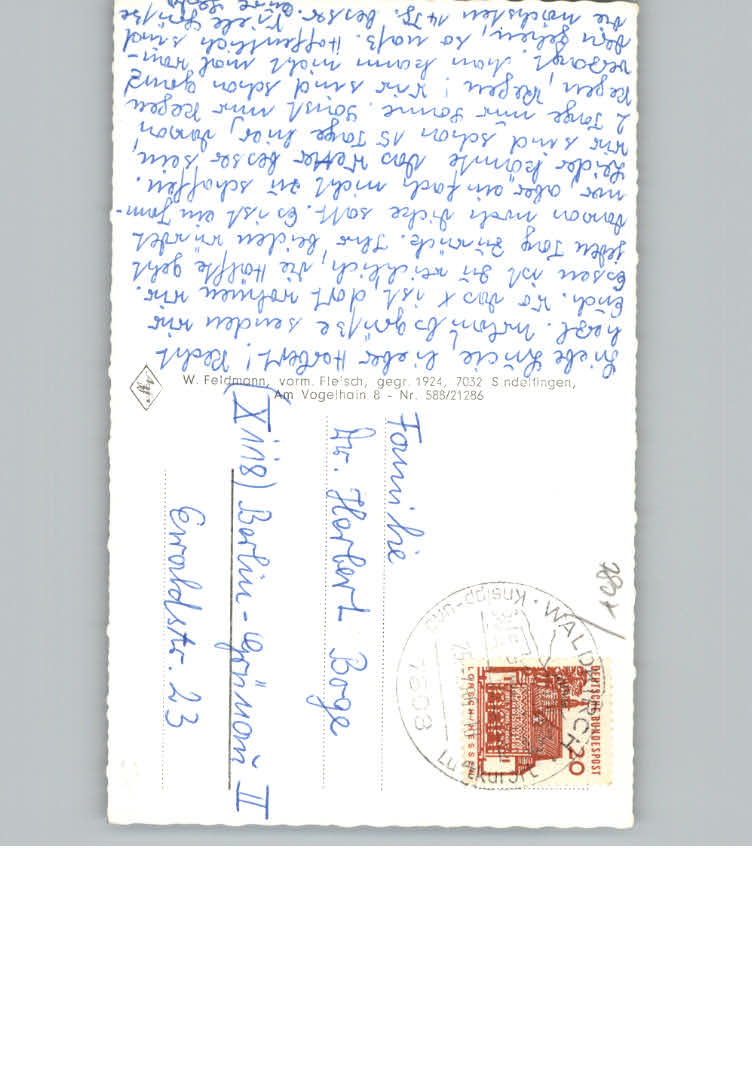 Liebe Lucie, lieber Herbert! Recht
herzl. Urlaubsgrüße senden wir
Euch. Wo das x ist dort wohnen wir.
Essen ist zu reichlich, die Hälfte geht
jeden Tag zurück. Ihr beiden würdet
davon noch dicke satt. Es ist ein Jam-
mer, aber einfach nicht zu schaffen.
Leider könnte das Wetter besser sein,
wir sind schon 15 Tage hier, davon
2 Tage nur Sonne. Sonst nur Regen
Regen, Regen! Wir sind schon ganz
verzagt. Man kann nicht mal raus-
gehen, so naß. Hoffentlich sind
die nächsten 14 Tg. besser.
Viele Grüße
Eure
W. Feldmann, vorm. Fleisch, gegr. 1924, 7032 Sindelfingen,
Am Vogelhain 8 - Nr. 588/21286
Familie
Dr. Herbert Boge
(X 118) Berlin-Grünau II
Ewaldstr. 23
DEUTSCHE BUNDESPOST
20
LORSCH/HESSEN
7808
WALDKIRCH
Kneipp- und
Luftkurort